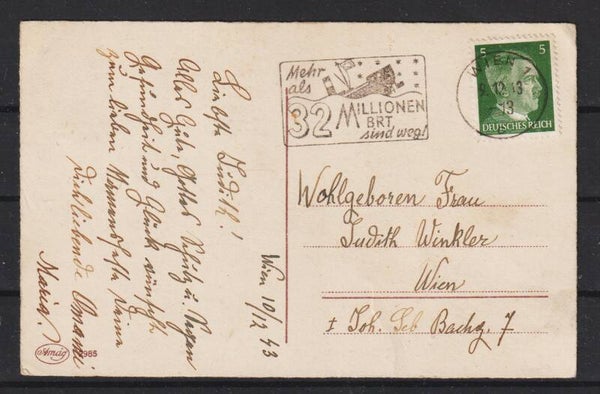 Liebste Judith!
Alles Gute, Gottes Schutz u. Segen
Gesundheit und Glück wünscht
zum lieben Namensfeste Deine
Dichliebende Omami
Maria.
Wien 10/12 43
Amag
Mehr
als
32 MILLIONEN
BRT
sind weg!
5 5
WIEN
12.43
13
DEUTSCHES REICH
Wohlgeboren Frau
Judith Winkler
Wien
Joh. Seb Bachg. 7